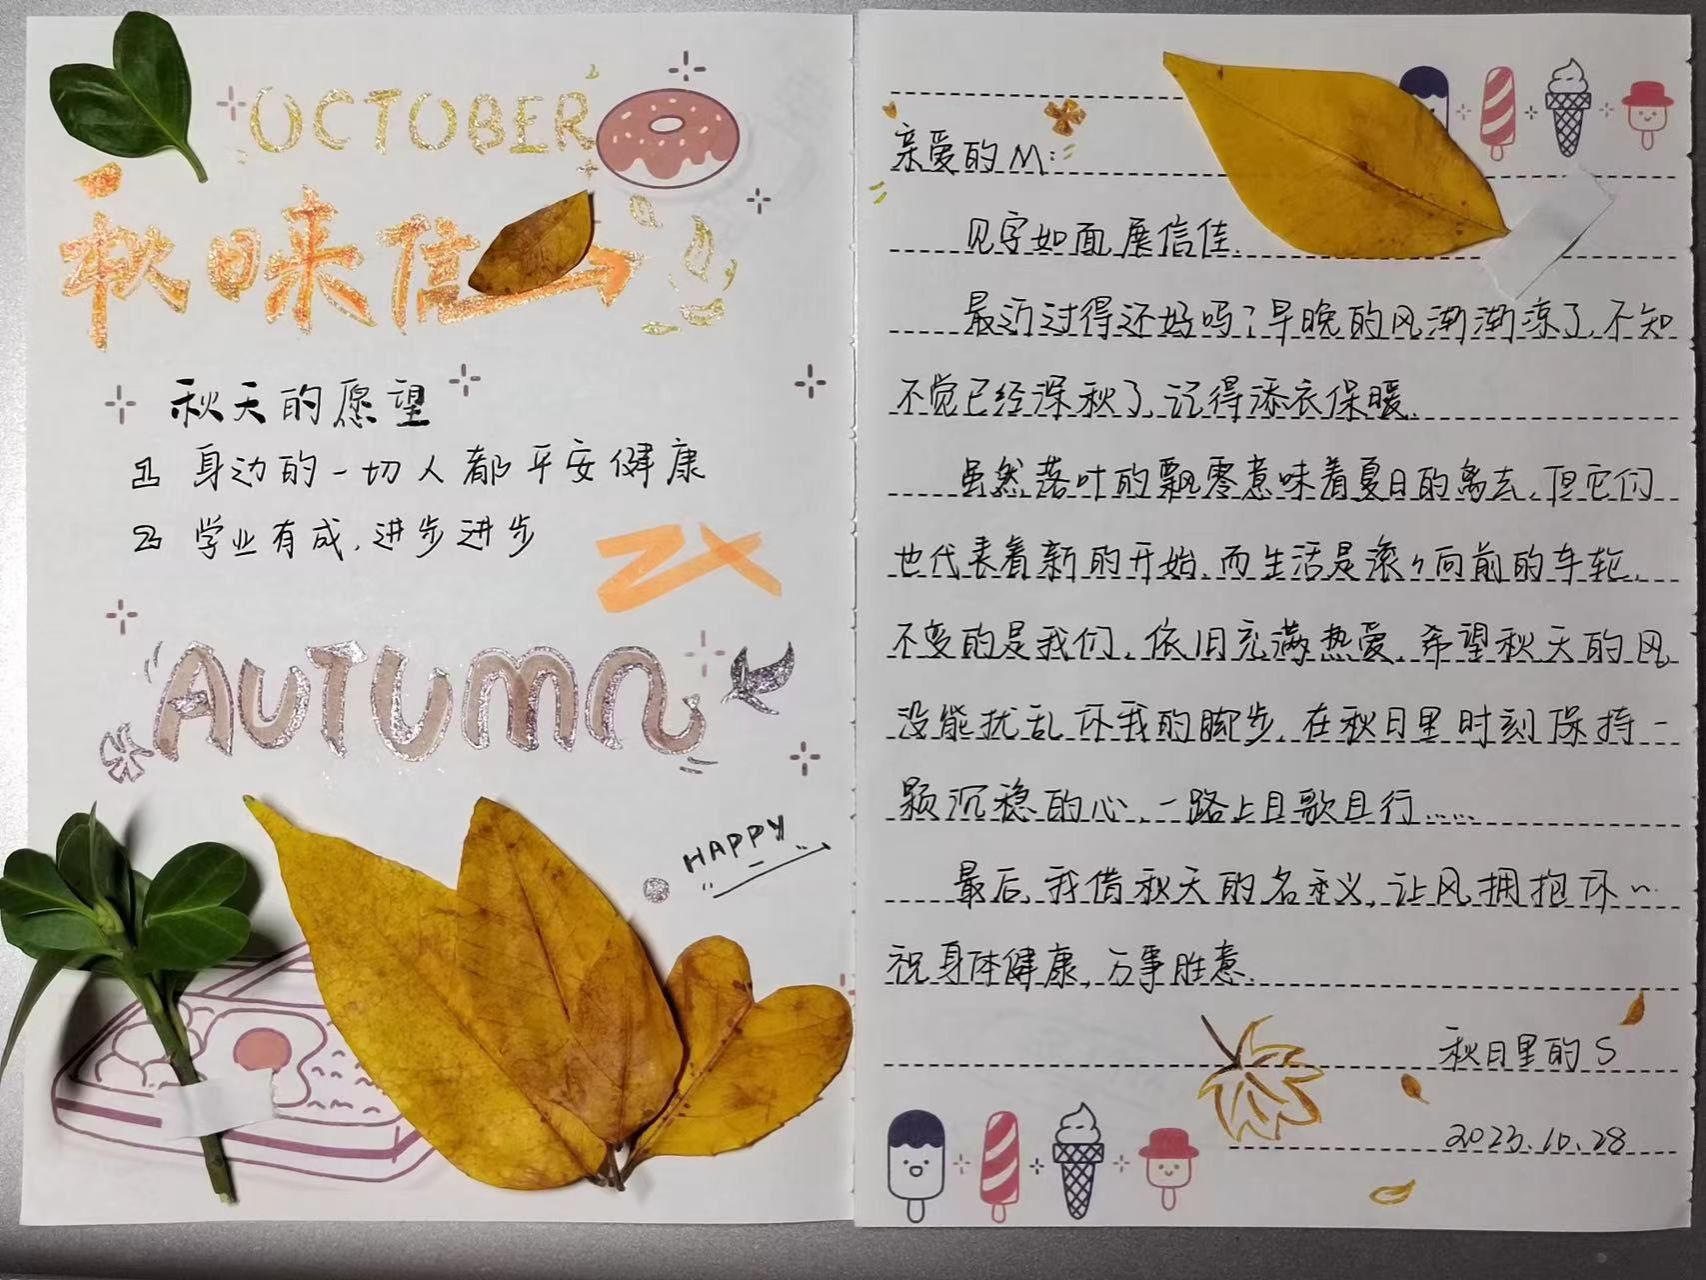 OCTOBER
秋日来信
秋天的愿望
1 身边的一切人都平安健康
2 学业有成,进步进步
ZX
AUTUMN
HAPPY
亲爱的M:
见字如面,展信佳.
最近过得还好吗?早晚的风渐渐凉了,不知
不觉已经深秋了,记得添衣保暖.
虽然落叶的飘零意味着夏日的离去,但它们
也代表着新的开始,而生活是滚々向前的车轮,
不变的是我们,依旧充满热爱,希望秋天的风
没能扰乱你我的脚步,在秋日里时刻保持一
颗沉稳的心,一路上且歌且行……
最后,我借秋天的名义,让风拥抱你~
祝身体健康,万事胜意.
秋日里的S
2023.10.28